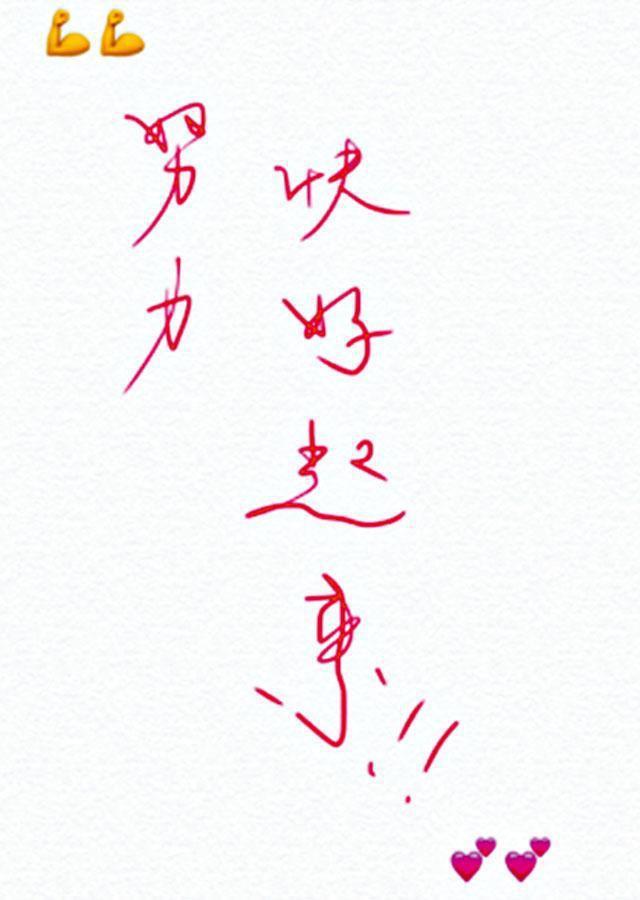 💪💪
努力
快好起来!!
💕💕